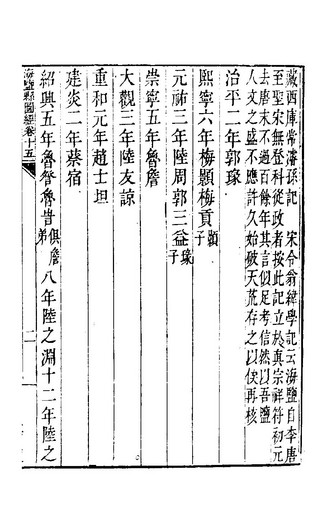 藏西庫常濬孫記　宋令翁緯學記云海鹽自李唐
至聖宋無登科從政者按此記立於真宗祥符初元
去唐末不過百餘年其言似足考信然以吾鹽
人文之盛不應許久始破天荒存之以俟再核
治平二年郭瑑
熙寧六年梅顥梅貢顥子
元祐三年陸周郭三益瑑子
崇寧五年魯詹
大觀三年陸友諒
重和元年趙士坦
建炎二年蔡宿
紹興五年魯詧魯訔俱詹弟八年陸之淵十二年陸之
海鹽縣圖經卷十五
二